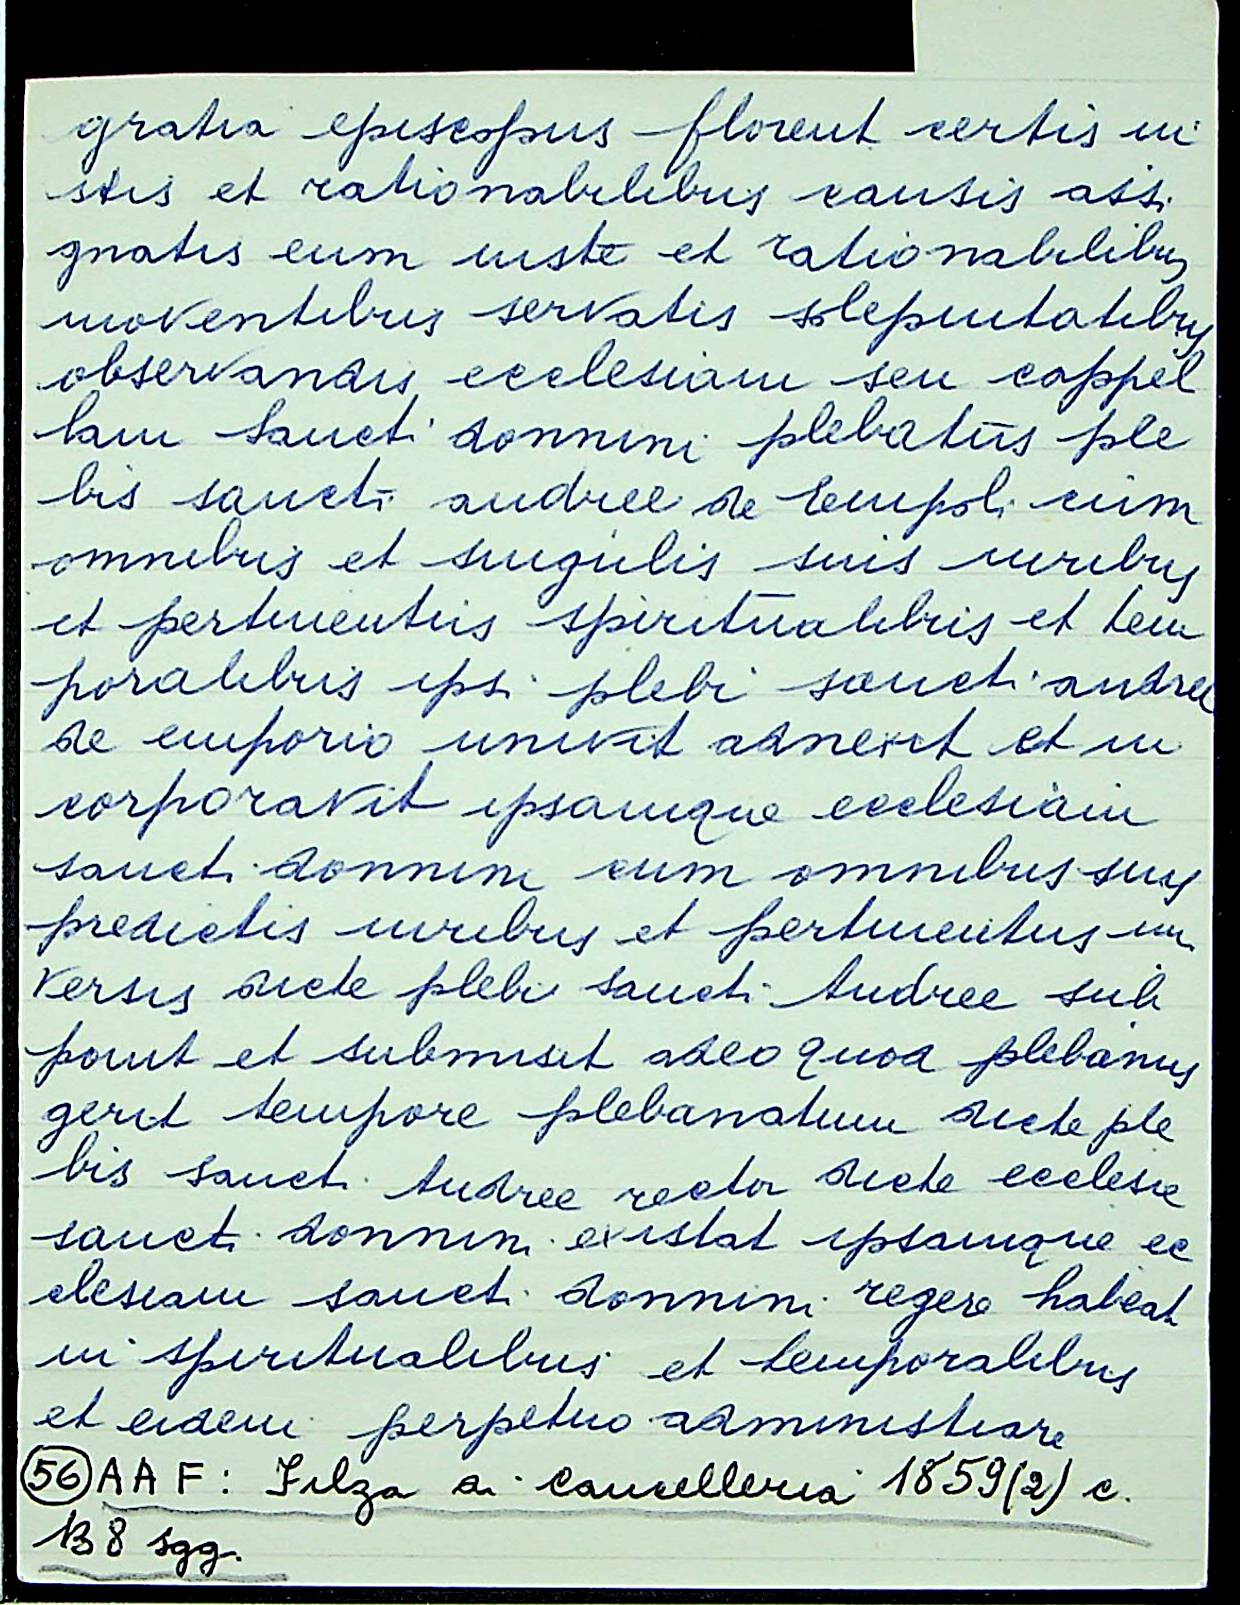 gratia episcopus florent certis iu
stis et rationabilibus causis assi
gnatis eum iuste et rationabilibus
moventibus servatis solepnitatibus
observandis ecclesiam seu cappel
lam sancti donnini plebatus ple
bis sancti andree de Empoli cum
omnibus et singulis suis iuribus
et pertinentiis spiritualibus et tem
poralibus ipsi plebi sancti andree
de emporio univit adnexit et in
corporavit ipsamque ecclesiam
sancti donnini cum omnibus suis
predictis iuribus et pertinentiis uni
versis dicte plebi sancti Andree sub
ponit et submisit adeo quod plebanus
gerit tempore plebanatum dicte ple
bis sancti Andree rector dicte ecclesie
sancti donnini existat ipsamque ec
clesiam sancti donnini regere habeat
in spiritualibus et temporalibus
et eidem perpetuo administrare
(56) AAF: Filza di cancelleria 1859(2) c.
138 sgg.